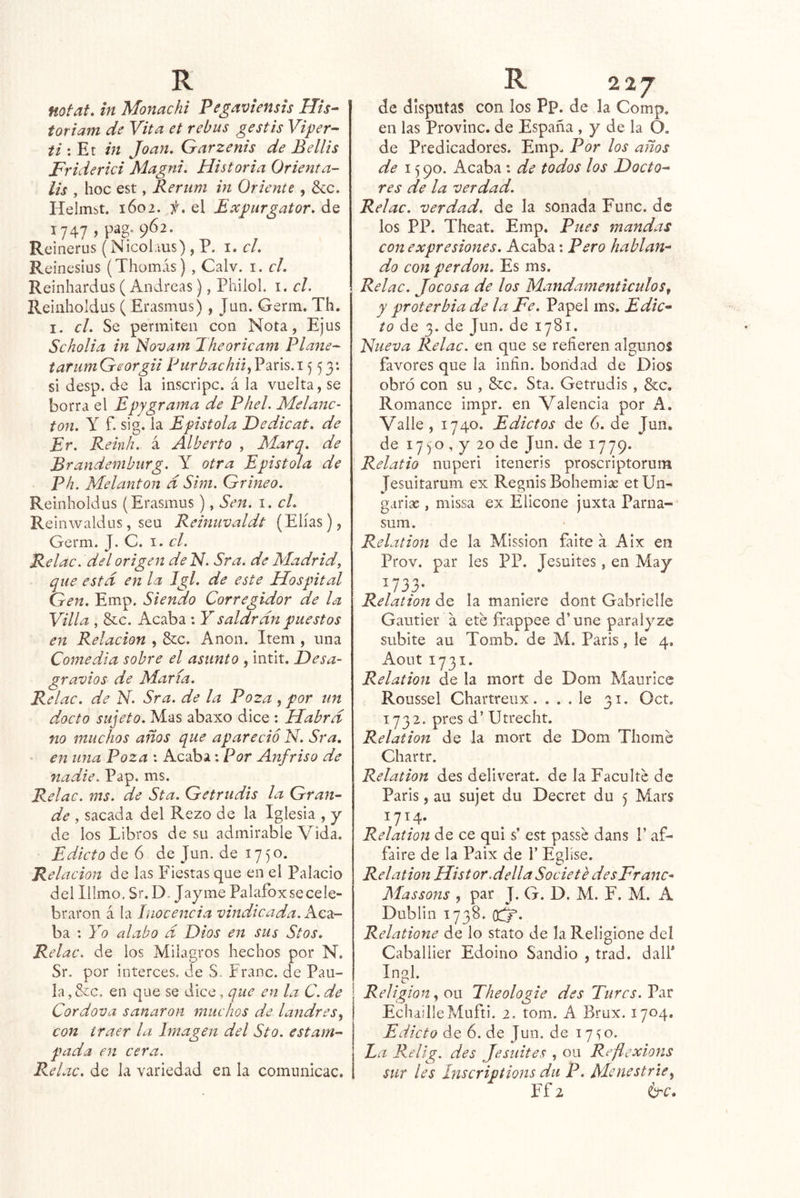 R
notat. in Monachi Pegaviensis His-
toriam de Vita et rebus gestis Viper-
ti : Et in Joan. Garzenis de Bellis
Friderici Magni. Historia Orienta-
lis , hoc est , Rerum in Oriente , &c.
Helmst. 1602. ℣. el Expurgator. de
1747 , pag. 962.
Reinerus ( Nicolaus) , P. 1. cl.
Reinesius (Thomás) , Calv. 1. cl.
Reinhardus ( Andreas ) , Philol. 1. cl.
Reinholdus ( Erasmus) , Jun. Germ. Th.
1. cl. Se permiten con Nota, Ejus
Scholia in Novam Theoricam Plane-
tarum Georgii Purbachii, Paris. 1553:
si desp. de la inscripc. á la vuelta, se
borra el Epygrama de Phel. Melanc-
ton. Y f. sig. la Epistola Dedicat. de
Er. Reinh. á Alberto , Marq. de
Brandemburg. Y otra Epistola de
Ph. Melanton á Sim. Grineo.
Reinholdus ( Erasmus ) , Sen. 1. cl.
Reinwaldus, seu Reinuvaldt (Elías) ,
Germ. J. C. 1. cl.
Relac. del origen de N. Sra. de Madrid,
que está en la Igl. de este Hospital
Gen. Emp. Siendo Corregidor de la
Villa , &c. Acaba : Y saldrán puestos
en Relacion , &c. Anon. Item , una
Comedia sobre el asunto , intit. Desa-
gravios de María.
Relac. de N. Sra. de la Poza , por un
docto sujeto. Mas abaxo dice : Habrá
no muchos años que apareció N. Sra.
en una Poza : Acaba : Por Anfriso de
nadie. Pap. ms.
Relac. ms. de Sta. Getrudis la Gran-
de , sacada del Rezo de la Iglesia , y
de los Libros de su admirable Vida.
Edicto de 6 de Jun. de 1750.
Relacion de las Fiestas que en el Palacio
del Illmo. Sr. D. Jayme Palafox se cele-
braron á la Inocencia vindicada. Aca-
ba : Yo alabo á Dios en sus Stos.
Relac. de los Milagros hechos por N.
Sr. por interces. de S. Franc. de Pau-
la , &c. en que se dice , que en la C. de
Cordova sanaron muchos de landres,
con traer la Imagen del Sto. estam-
pada en cera.
Relac. de la variedad en la comunicac.
R 227
de disputas con los PP. de la Comp.
en las Provinc. de España , y de la O.
de Predicadores. Emp. Por los años
de 1590. Acaba : de todos los Docto-
res de la verdad.
Relac. verdad. de la sonada Func. de
los PP. Theat. Emp. Pues mandas
con expresiones. Acaba : Pero hablan-
do con perdon. Es ms.
Relac. Jocosa de los Mandamenticulos,
y proterbia de la Fe. Papel ms. Edic-
to de 3. de Jun. de 1781.
Nueva Relac. en que se refieren algunos
favores que la infin. bondad de Dios
obró con su , &c. Sta. Getrudis , &c.
Romance impr. en Valencia por A.
Valle , 1740. Edictos de 6. de Jun.
de 1750 , y 20 de Jun. de 1779.
Relatio nuperi iteneris proscriptorum
Jesuitarum ex Regnis Bohemiæ et Un-
gariæ , missa ex Elicone juxta Parna-
sum.
Relation de la Mission faite à Aix en
Prov. par les PP. Jesuites , en May
1733.
Relation de la maniere dont Gabrielle
Gautier à etè frappee d' une paralyze
subite au Tomb. de M. Paris , le 4.
Aout 1731.
Relation de la mort de Dom Maurice
Roussel Chartreux. . . . le 31. Oct.
1732. pres d' Utrecht.
Relation de la mort de Dom Thomè
Chartr.
Relation des deliverat. de la Facultè de
Paris , au sujet du Decret du 5 Mars
1714.
Relation de ce qui s' est passè dans l' af-
faire de la Paix de l' Eglise.
Relation Histor. della Societè des Franc-
Massons , par J. G. D. M. F. M. A
Dublin 1738. ☞.
Relatione de lo stato de la Religione del
Caballier Edoino Sandio , trad. dall'
Ingl.
Religion, ou Theologie des Turcs. Par
Echaille Mufti. 2. tom. A Brux. 1704.
Edicto de 6. de Jun. de 1750.
La Relig. des Jesuites , ou Reflexions
sur les Inscriptions du P. Menestrie,
Ff 2 &c.